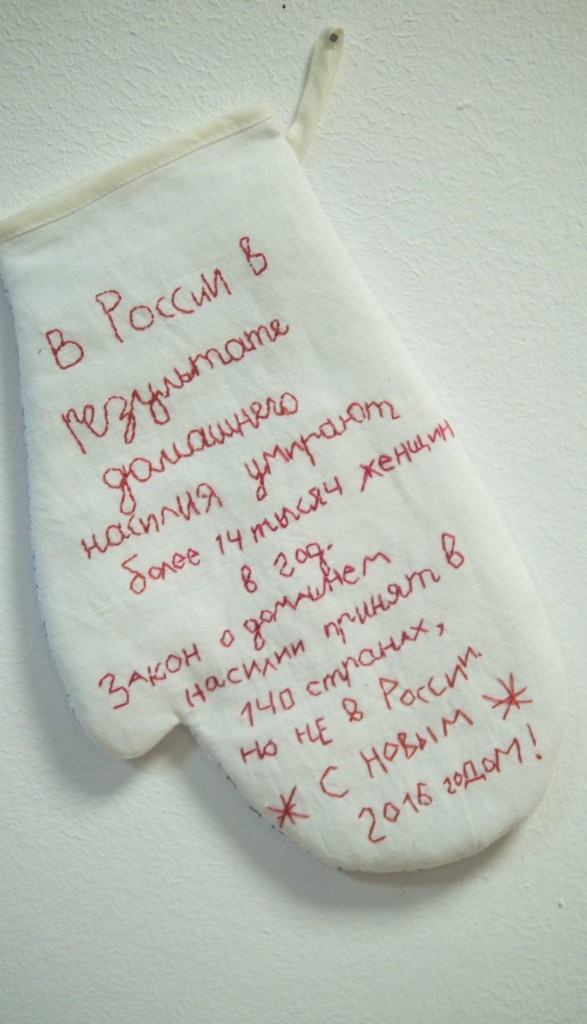 В России в
результате
домашнего
насилия умирают
более 14 тысяч женщин
в год.
Закон о домашнем
насилии принят в
140 странах,
но НЕ в России.
* С новым *
2016 годом!